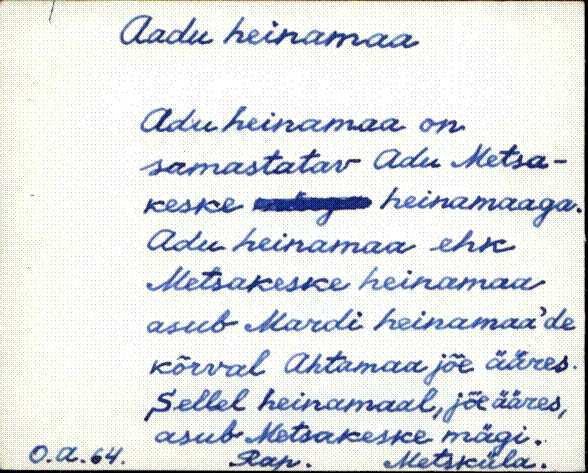 Aadu heinamaa
Adu heinamaa on
samastatav Adu Metsa-
keske heinamaaga.
Adu heinamaa ehk
Metsakeske heinamaa
asub Mardi heinamaa'de
kõrval Ahtamaa jõe ääres.
Sellel heinamaal, jõe ääres,
asub Metsakeske mägi.
O.A.64. Rap. Metsküla.